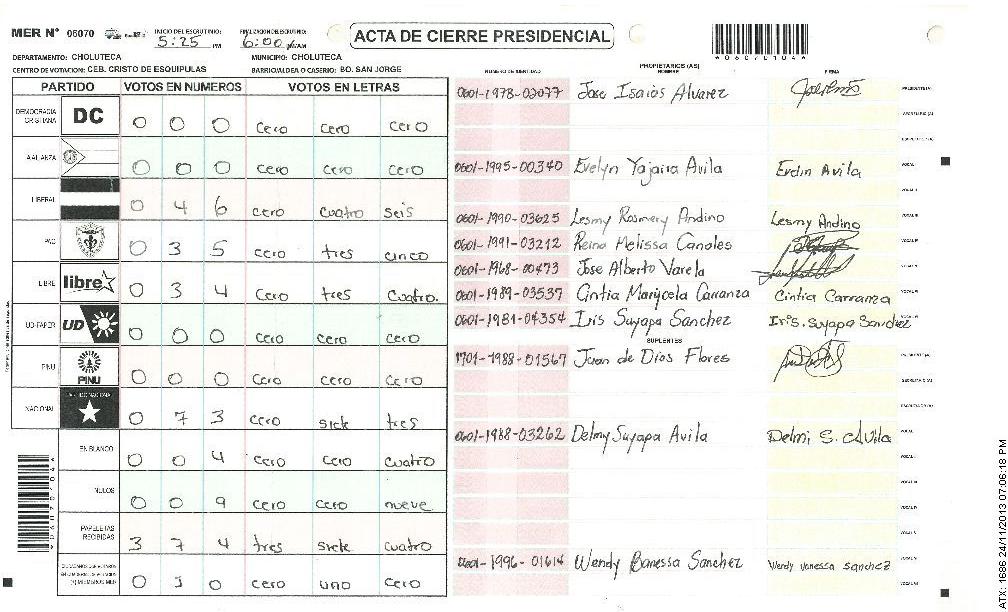 MER N° 06070 INICIO DEL ESCRUTINIO: 5:25 PM FINALIZACION DEL ESCRUTINIO: 6:00 PM/AM
ACTA DE CIERRE PRESIDENCIAL
*06070104*
DEPARTAMENTO: CHOLUTECA MUNICIPIO: CHOLUTECA
CENTRO DE VOTACION: CEB. CRISTO DE ESQUIPULAS BARRIO/ALDEA O CASERIO: BO. SAN JORGE
PARTIDO VOTOS EN NUMEROS VOTOS EN LETRAS
DEMOCRACIA CRISTIANA DC 0 0 0 cero cero cero
ALIANZA 0 0 0 cero cero cero
LIBERAL 0 4 6 cero cuatro seis
PAC 0 3 5 cero tres cinco
LIBRE libre 0 3 4 cero tres cuatro.
UD-FAPER UD 0 0 0 cero cero cero
PINU PINU 0 0 0 cero cero cero
NACIONAL PARTIDO NACIONAL 0 7 3 cero siete tres
EN BLANCO 0 0 4 cero cero cuatro
NULOS 0 0 9 cero cero nueve
PAPELETAS RECIBIDAS 3 7 4 tres siete cuatro
0 1 0 cero uno cero
NUMERO DE IDENTIDAD PROPIETARIOS (AS) NOMBRE FIRMA
0601-1978-02077 Jose Isaias Alvarez PRESIDENTE(A)
SECRETARIO (A)
ESCRUTADOR (A)
0601-1995-00340 Evelyn Yajaira Avila VOCAL I
0601-1990-03625 Lesmy Rosmery Andino Lesmy Andino
0601-1991-03212 Reina Melissa Canales
0601-1968-00473 Jose Alberto Varela
0601-1989-03537 Cintia Marycela Carranza Cintia Carranza
0601-1981-04354 Iris Suyapa Sanchez Iris. Suyapa Sanchez
SUPLENTES
1701-1988-01567 Juan de Dios Flores PRESIDENTE(A)
SECRETARIO (A)
ESCRUTADOR (A)
0601-1988-03262 Delmy Suyapa Avila Delmi S. Avila
0601-1996-01614 Wendy Banessa Sanchez Wendy vanessa sanchez
ATX: 1686 24/11/2013 07:06:18 PM